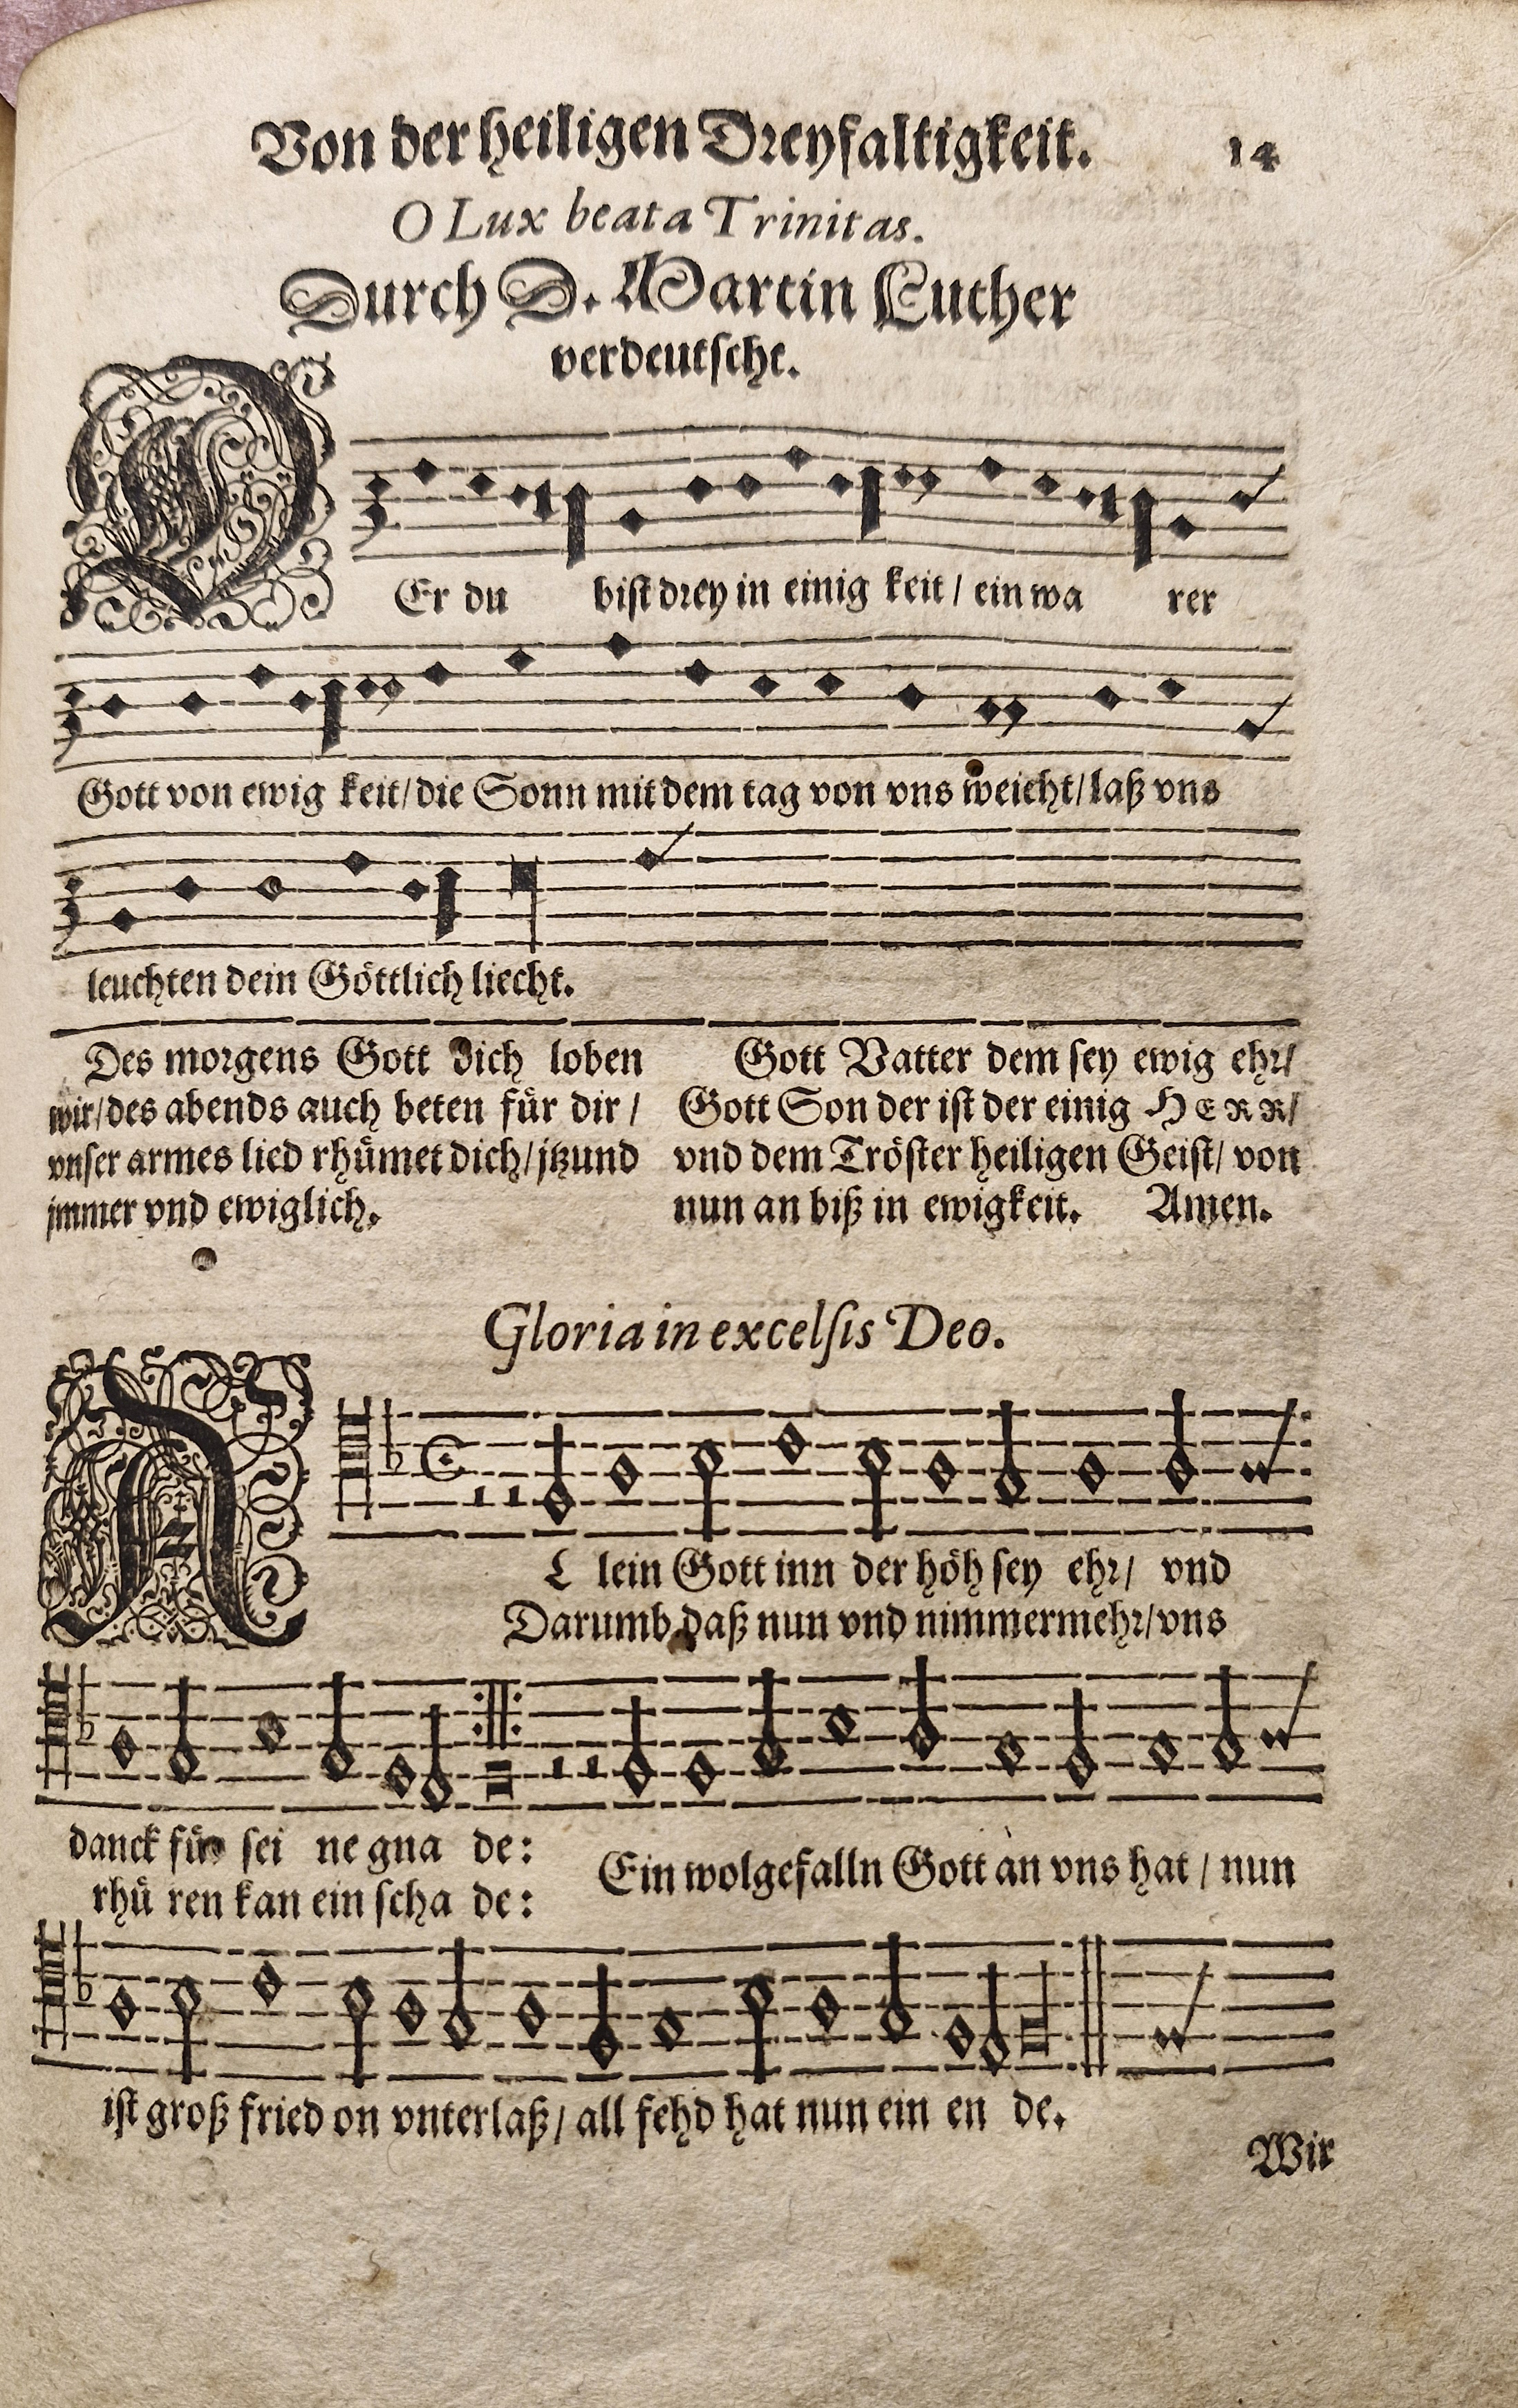 Von der heiligen Dreyfaltigkeit. 14
O Lux beata Trinitas.
Durch D. Martin Luther
verdeutscht.
DEr du bist drey in einig keit / ein wa rer
Gott von ewig keit / die Sonn mit dem tag von vns weicht / laß vns
leuchten dein Göttlich liecht.
Des morgens Gott dich loben
wir / des abends auch beten für dir /
vnser armes lied rhümet dich / jtzund
jmmer vnd ewiglich.
Gott Vatter dem sey ewig ehr /
Gott Son der ist der einig HERR /
vnd dem Tröster heiligen Geist / von
nun an biß in ewigkeit. Amen.
Gloria in excelsis Deo.
AL lein Gott inn der höh sey ehr / vnd
Darumb daß nun vnd nimmermehr / vns
danck für sei ne gna de:
rhü ren kan ein scha de:
Ein wolgefalln Gott an vns hat / nun
ist groß fried on vnterlaß / all fehd hat nun ein en de.
Wir